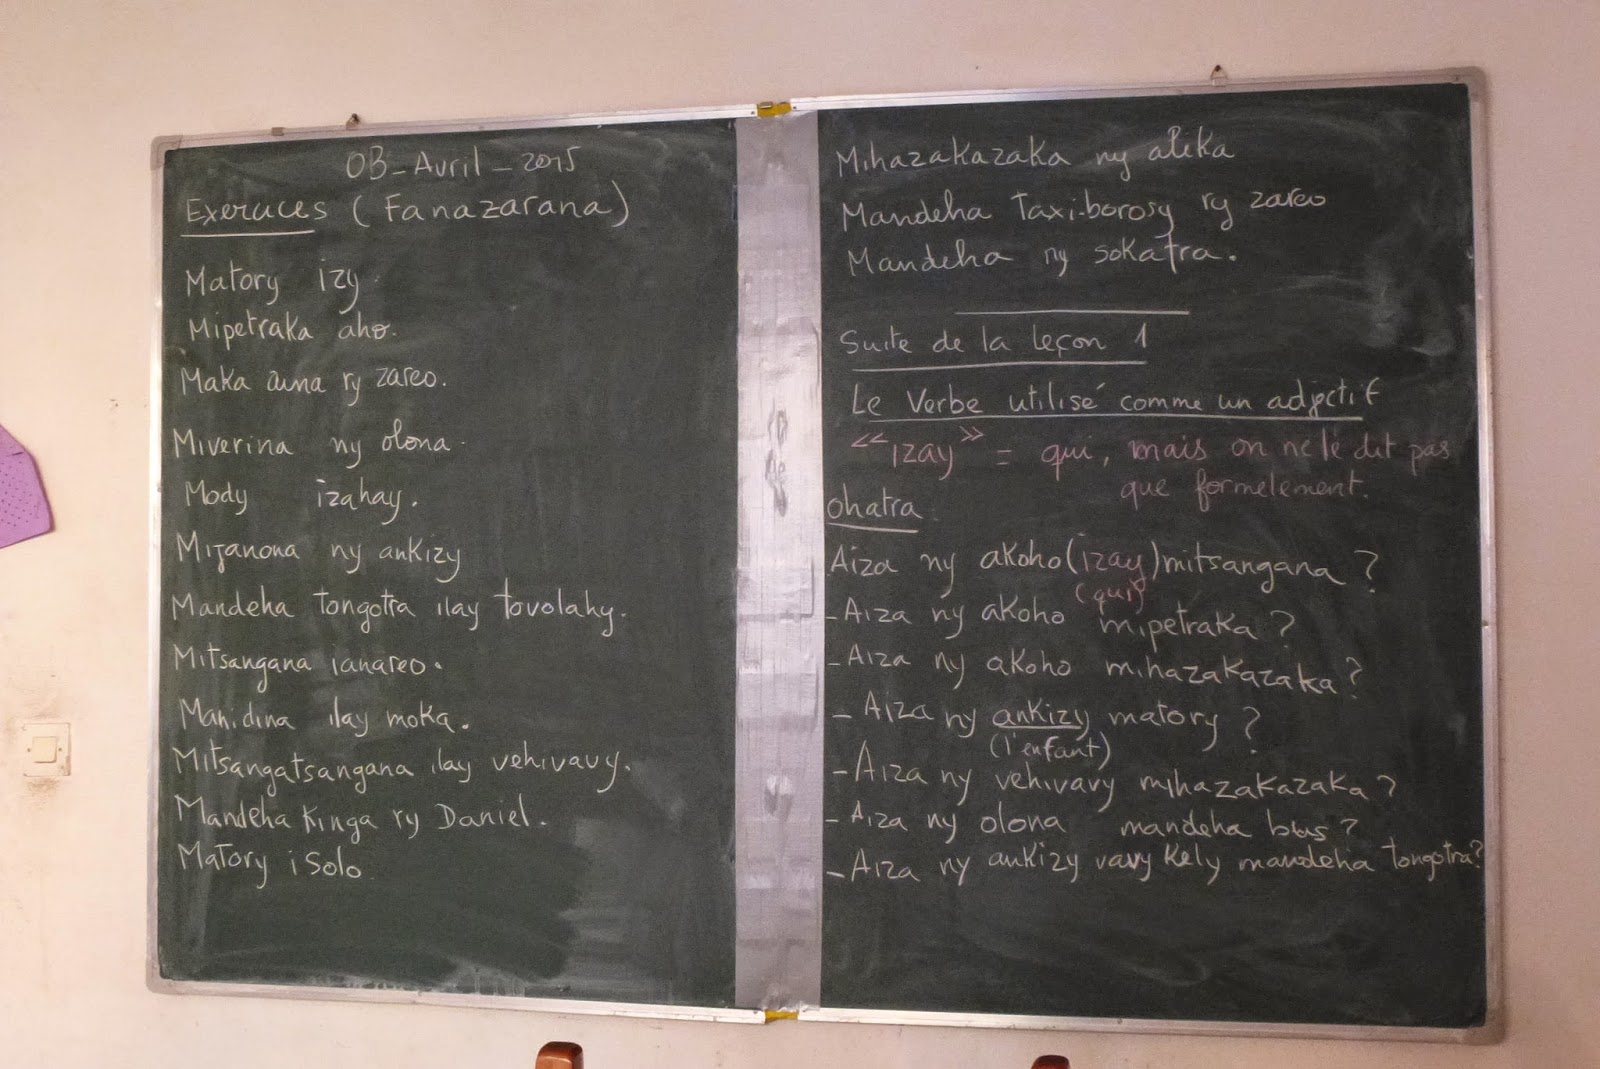 08_Avril_2015
Exercices (Fanazarana)
Matory izy.
Mipetraka aho.
Maka aina ry zareo.
Miverina ny olona.
Mody izahay.
Mijanona ny ankizy
Mandeha tongotra ilay tovolahy.
Mitsangana ianareo.
Manidina ilay moka.
Mitsangatsangana ilay vehivavy.
Mandeha Kinga ry Daniel.
Matory i Solo.
Mihazakazaka ny alika
Mandeha taxi-borosy ry zareo
Mandeha ny sokatra.
Suite de la leçon 1
Le Verbe utilisé comme un adjectif
"izay" = qui, mais on ne le dit pas
que formelement.
Ohatra:
Aiza ny akoho (izay) mitsangana ?
(qui)
- Aiza ny akoho mipetraka ?
- Aiza ny akoho mihazakazaka ?
- Aiza ny ankizy matory ?
(l'enfant)
- Aiza ny vehivavy mihazakazaka ?
- Aiza ny olona mandeha bus ?
- Aiza ny ankizy vavy Kely mandeha tongotra?